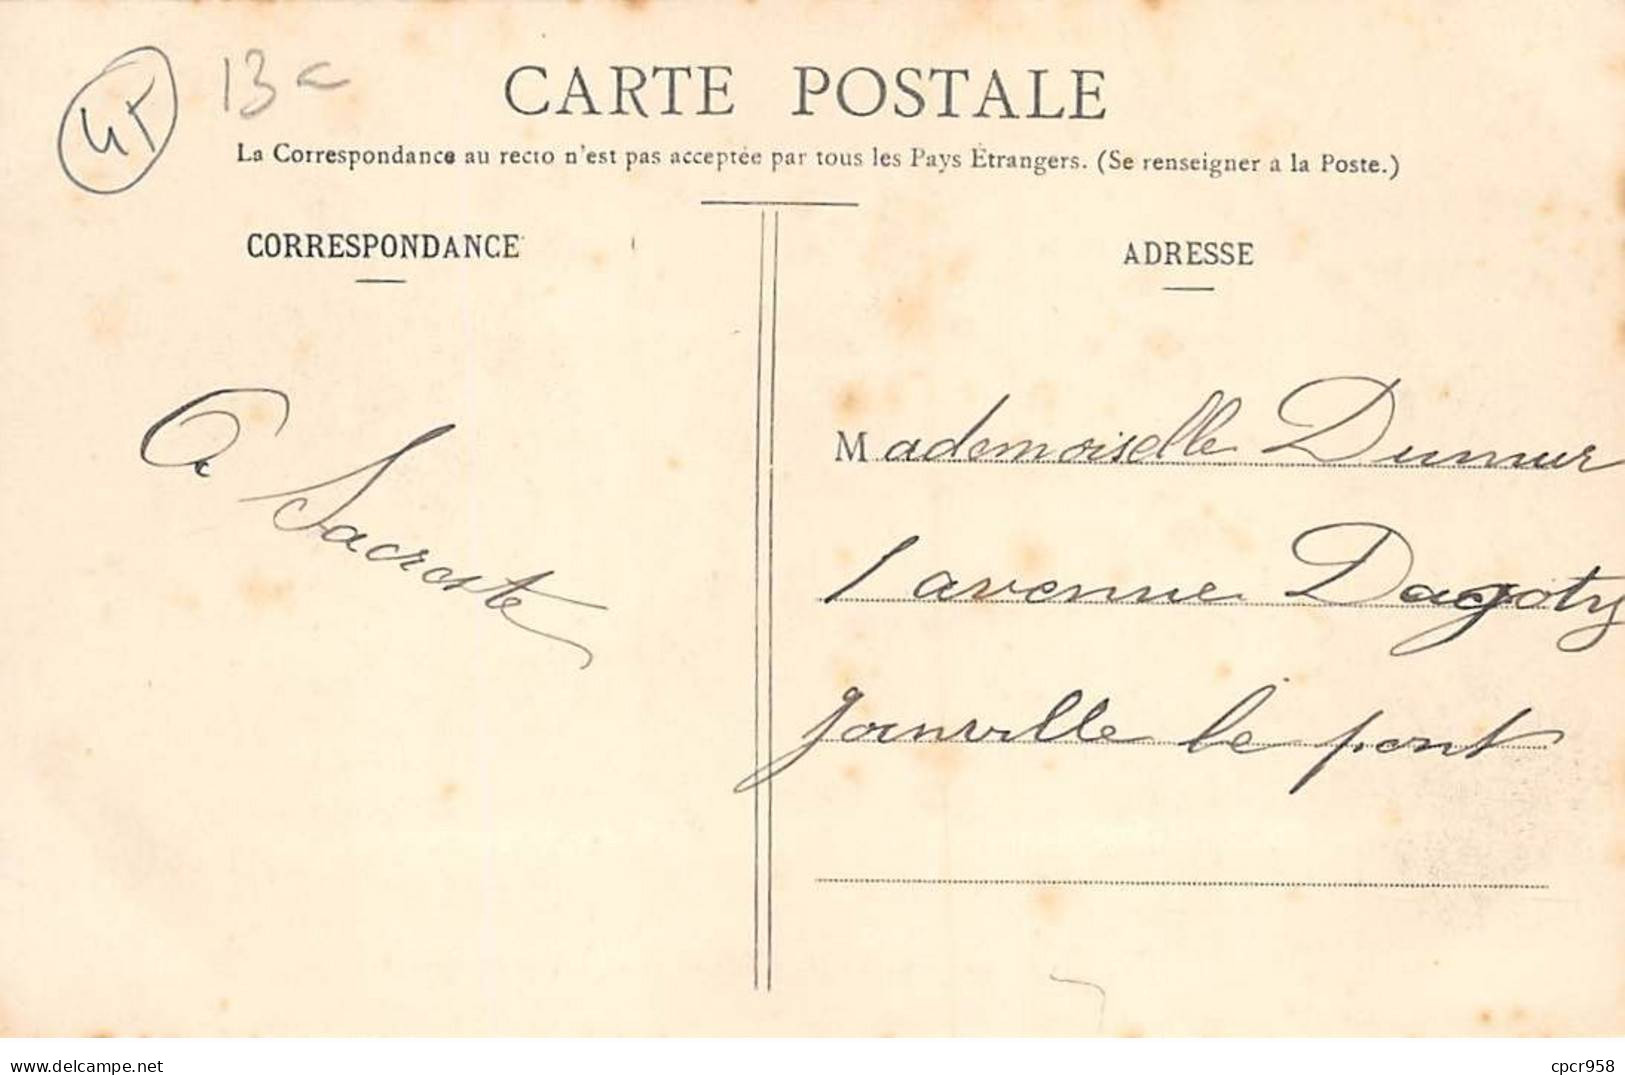 45
13
CARTE POSTALE
La Correspondance au recto n'est pas acceptée par tous les Pays Étrangers. (Se renseigner a la Poste.)
CORRESPONDANCE
ADRESSE
A Lacroste
Mademoiselle Dumur
1 avenue Dagoty
Joinville le pont
www.delcampe.net
cpcr958